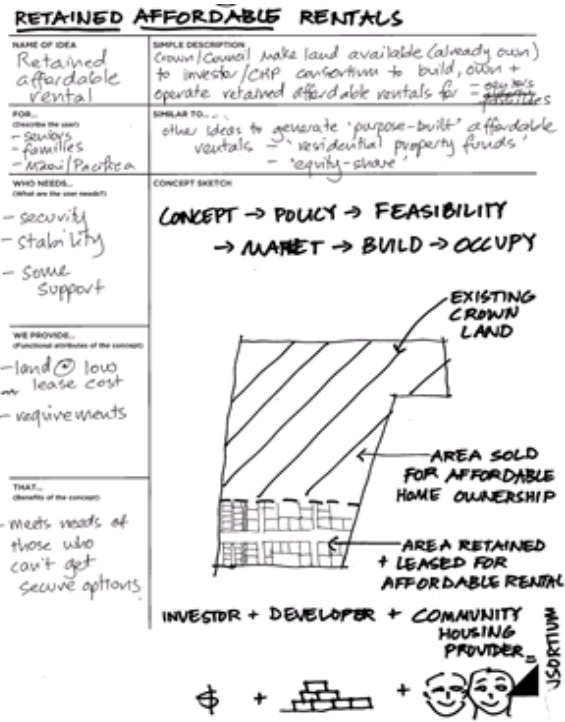 RETAINED AFFORDABLE RENTALS
NAME OF IDEA
Retained
affordable
rental
SIMPLE DESCRIPTION
Crown/Council make land available (already own)
to investor/CHP consortium to build, own +
operate retained affordable rentals for
families
FOR...
(Describe the user)
- seniors
- families
- Maori/Pacifica
SIMILAR TO...
other ideas to generate 'purpose-built' affordable
rentals - 'residential property funds'
- 'equity-share'
WHO NEEDS...
(What are the user needs?)
- security
- stability
- some
support
CONCEPT SKETCH
CONCEPT → POLICY → FEASIBILITY
→ MARKET → BUILD → OCCUPY
EXISTING
CROWN
LAND
AREA SOLD
FOR AFFORDABLE
HOME OWNERSHIP
AREA RETAINED
+ LEASED FOR
AFFORDABLE RENTAL
WE PROVIDE...
(Functional attributes of the concept)
- land @ low
lease cost
- requirements
THAT...
(Benefits of the concept)
- meets needs of
those who
can't get
secure options
INVESTOR + DEVELOPER + COMMUNITY
HOUSING
PROVIDER =
NSORTIUM
$ + +